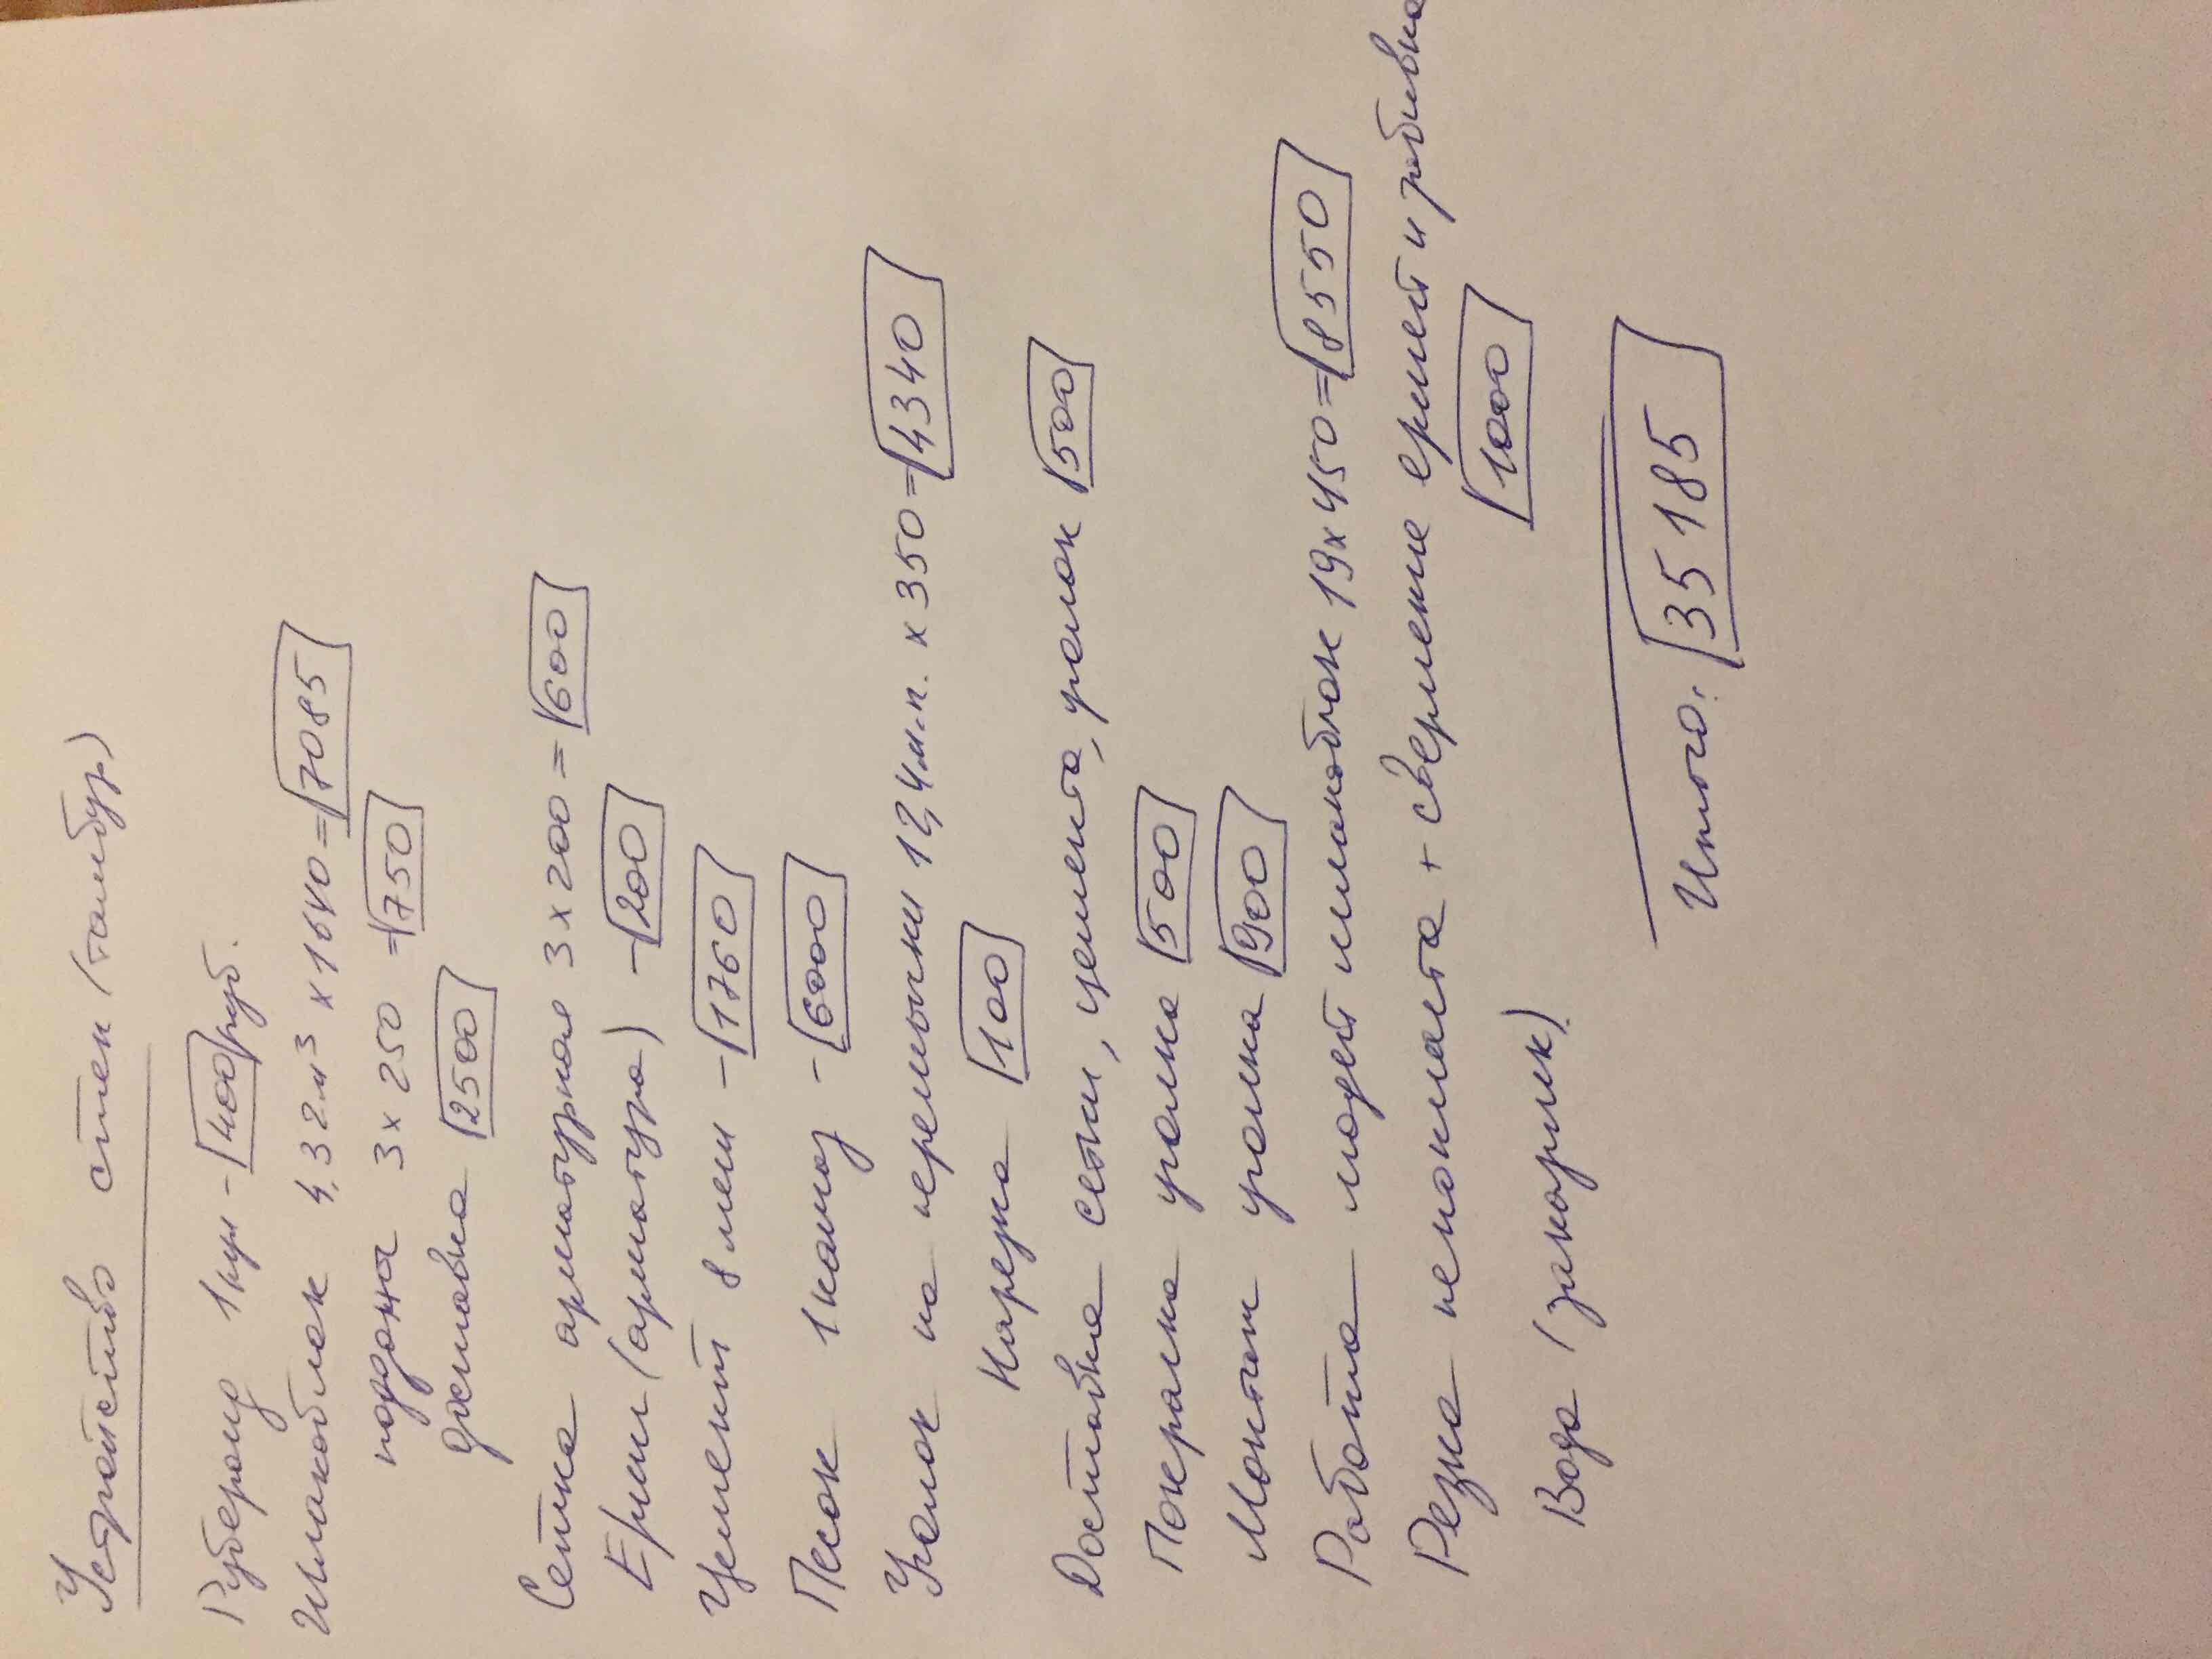 Устройство стен (тамбур)
Рубероид 1рул - 400 руб.
Шлакоблок 4,32м³ x 1640 = 7085
поддоны 3 x 250 = 750
доставка 2500
Сетка арматурная 3 x 200 = 600
Ерши (арматура) - 200
Цемент 8 меш - 1760
Песок 1 камаз - 6000
Уголок на перемычки 12,4 м.п. x 350 = 4340
Нарезка 100
Доставка сетки, цемента, уголок 500
Покраска уголка 500
Монтаж уголка 900
Работа людей шлакоблок 19 x 450 = 8550
Резка пенопласта + сверление ершей и забивка
1000
Вода (
Итого: 35185